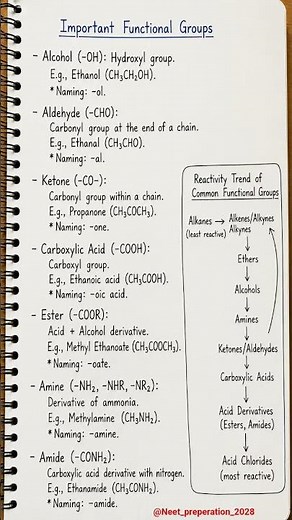 Important Functional Groups
– Alcohol (–OH): Hydroxyl group.
E.g., Ethanol (CH₃CH₂OH).
* Naming: –ol.
– Aldehyde (–CHO):
Carbonyl group at the end of a chain.
E.g., Ethanal (CH₃CHO).
* Naming: –al.
– Ketone (–CO–):
Carbonyl group within a chain.
E.g., Propanone (CH₃COCH₃).
* Naming: –one.
– Carboxylic Acid (–COOH):
Carboxyl group.
E.g., Ethanoic acid (CH₃COOH).
* Naming: –oic acid.
– Ester (–COOR):
Acid + Alcohol derivative.
E.g., Methyl Ethanoate (CH₃COOCH₃).
* Naming: –oate.
– Amine (–NH₂, –NHR, –NR₂):
Derivative of ammonia.
E.g., Methylamine (CH₃NH₂).
* Naming: –amine.
– Amide (–CONH₂):
Carboxylic acid derivative with nitrogen.
E.g., Ethanamide (CH₃CONH₂).
* Naming: –amide.
Reactivity Trend of
Common Functional Groups
Alkanes → Alkenes/Alkynes
(least reactive) Alkynes
↓
Ethers
↓
Alcohols
↓
Amines
↓
Ketones/Aldehydes
↓
Carboxylic Acids
↓
Acid Derivatives
(Esters, Amides)
↓
Acid Chlorides
(most reactive)
@Neet_preperation_2028